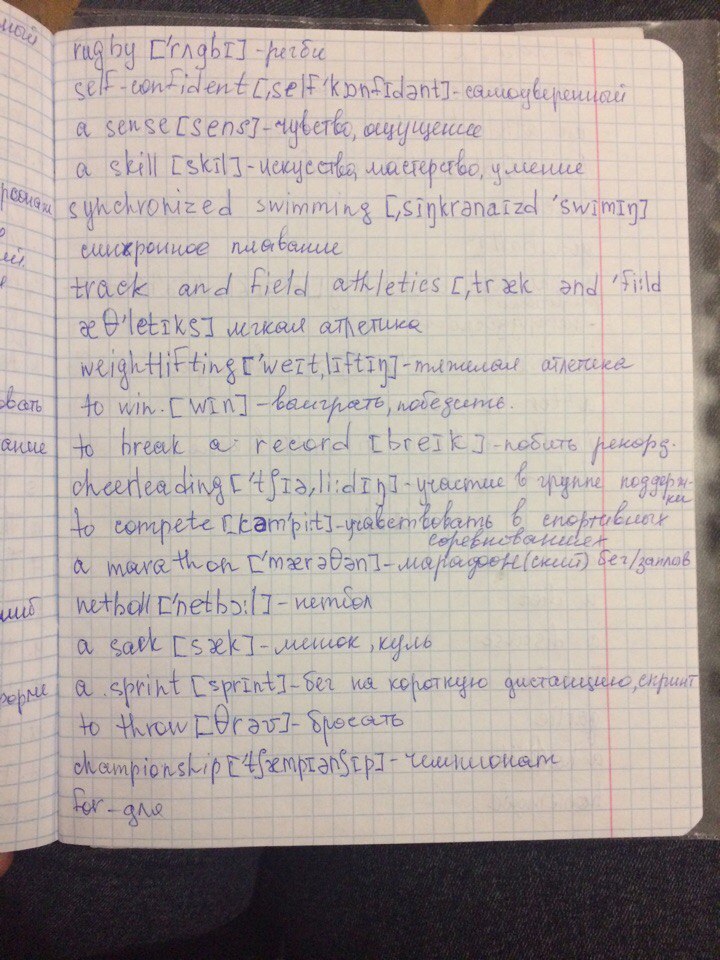 ный
рсонаж
ей
овать
ание
шиб
форме
rugby ['rʌgbɪ] - регби
self-confident [,self 'kɒnfɪdənt] - самоуверенный
a sense [sens] - чувство, ощущение
a skill [skɪl] - искусство, мастерство, умение
synchronized swimming [,sɪŋkrənaɪzd 'swɪmɪŋ]
синхронное плавание
track and field athletics [,træk ənd 'fi:ld
æθ'letɪks] лёгкая атлетика
weightlifting ['weɪt,lɪftɪŋ] - тяжелая атлетика
to win [wɪn] - выиграть, победить.
to break a record [breɪk] - побить рекорд.
cheerleading ['tʃɪə,li:dɪŋ] - участие в группе поддерж-
ки
to compete [kəm'pi:t] - учавствовать в спортивных
соревнованиях
a marathon ['mærəθən] - марафон(ский) бег/заплыв
netball ['netbɔ:l] - нетбол
a sack [sæk] - мешок, куль
a sprint [sprɪnt] - бег на короткую дистанцию, спринт
to throw [θrəʊ] - бросать
championship ['tʃæmpɪənʃɪp] - чемпионат
for - для